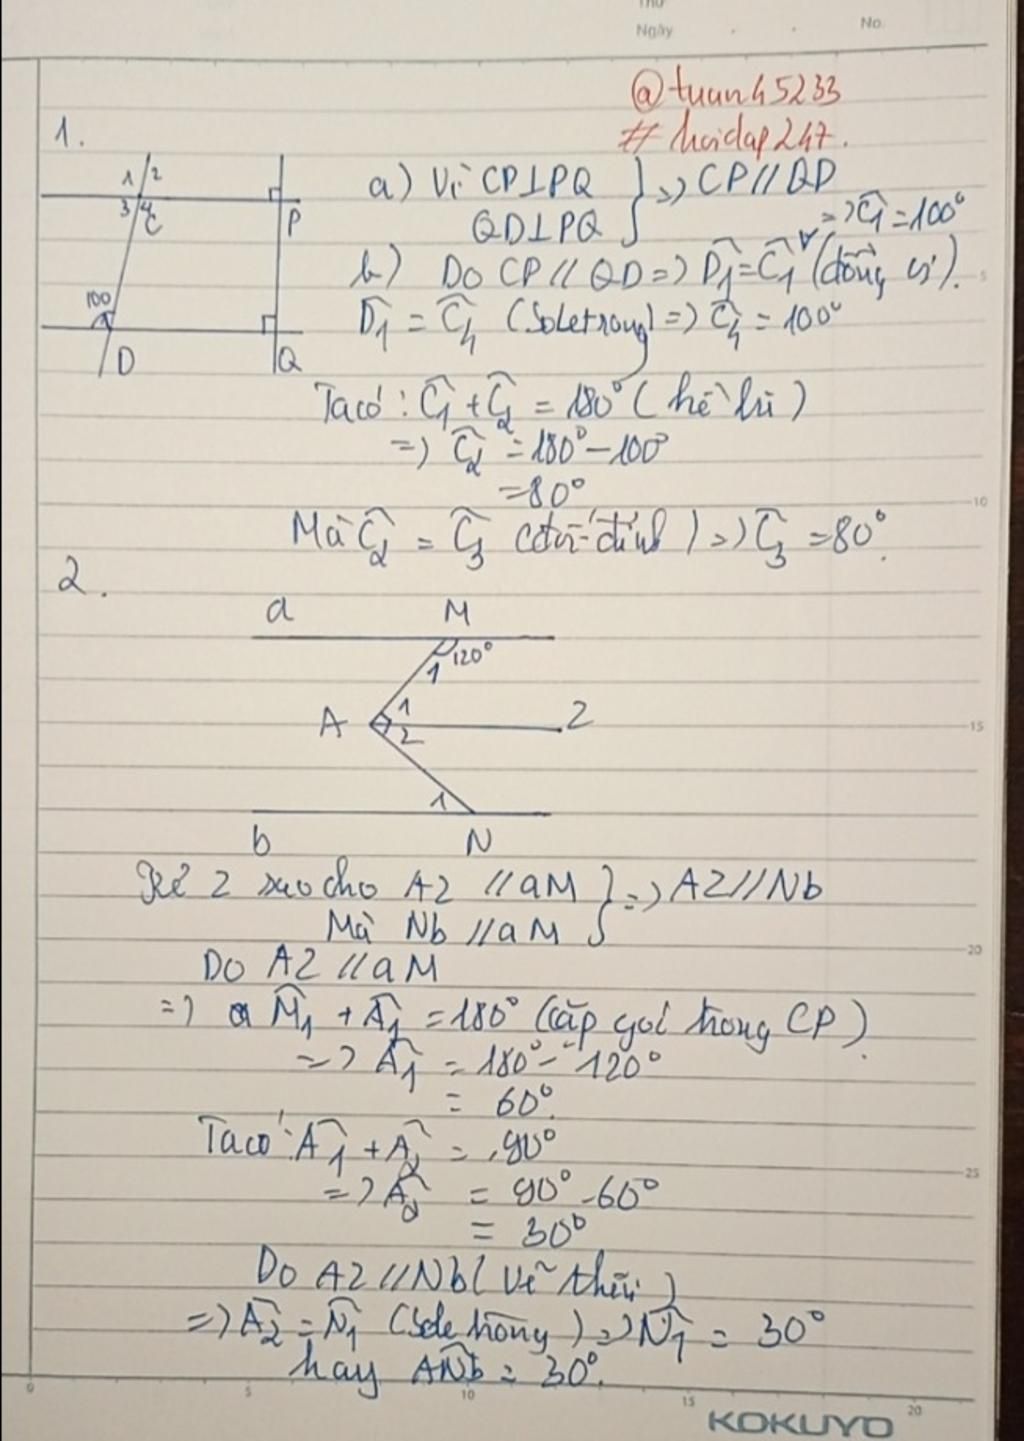 Thứ
Ngày
No.
@tuanh45233
# hoidap247.
1.
1 2
3 4
C
P
100
D
Q
a) Vì CP⊥PQ
QD⊥PQ } => CP//QD
b) Do CP//QD => D̂1 = Ĉ1 (đồng vị). => Ĉ1 = 100°
D̂1 = Ĉ4 (Soletrong) => Ĉ4 = 100°
Ta có: Ĉ1 + Ĉ2 = 180° (kề bù)
=> Ĉ2 = 180° - 100°
= 80°
Mà Ĉ2 = Ĉ3 (đối đỉnh) => Ĉ3 = 80°.
2.
a M
120°
1
A 1 2
1
b N
Kẻ z sao cho Az //aM } => Az//Nb
Mà Nb //aM
Do Az //aM
=> M̂1 + Â1 = 180° (cặp goi trong CP).
=> Â1 = 180° - 120°
= 60°.
Ta có: Â1 + Â2 = 90°
=> Â2 = 90° - 60°
= 30°
Do Az //Nb (Vẽ thêm)
=> Â2 = N̂1 (Sole trong) => N̂1 = 30°
hay AN̂b = 30°.
5
10
15
20
25
0 5 10 15 20
KOKUYO